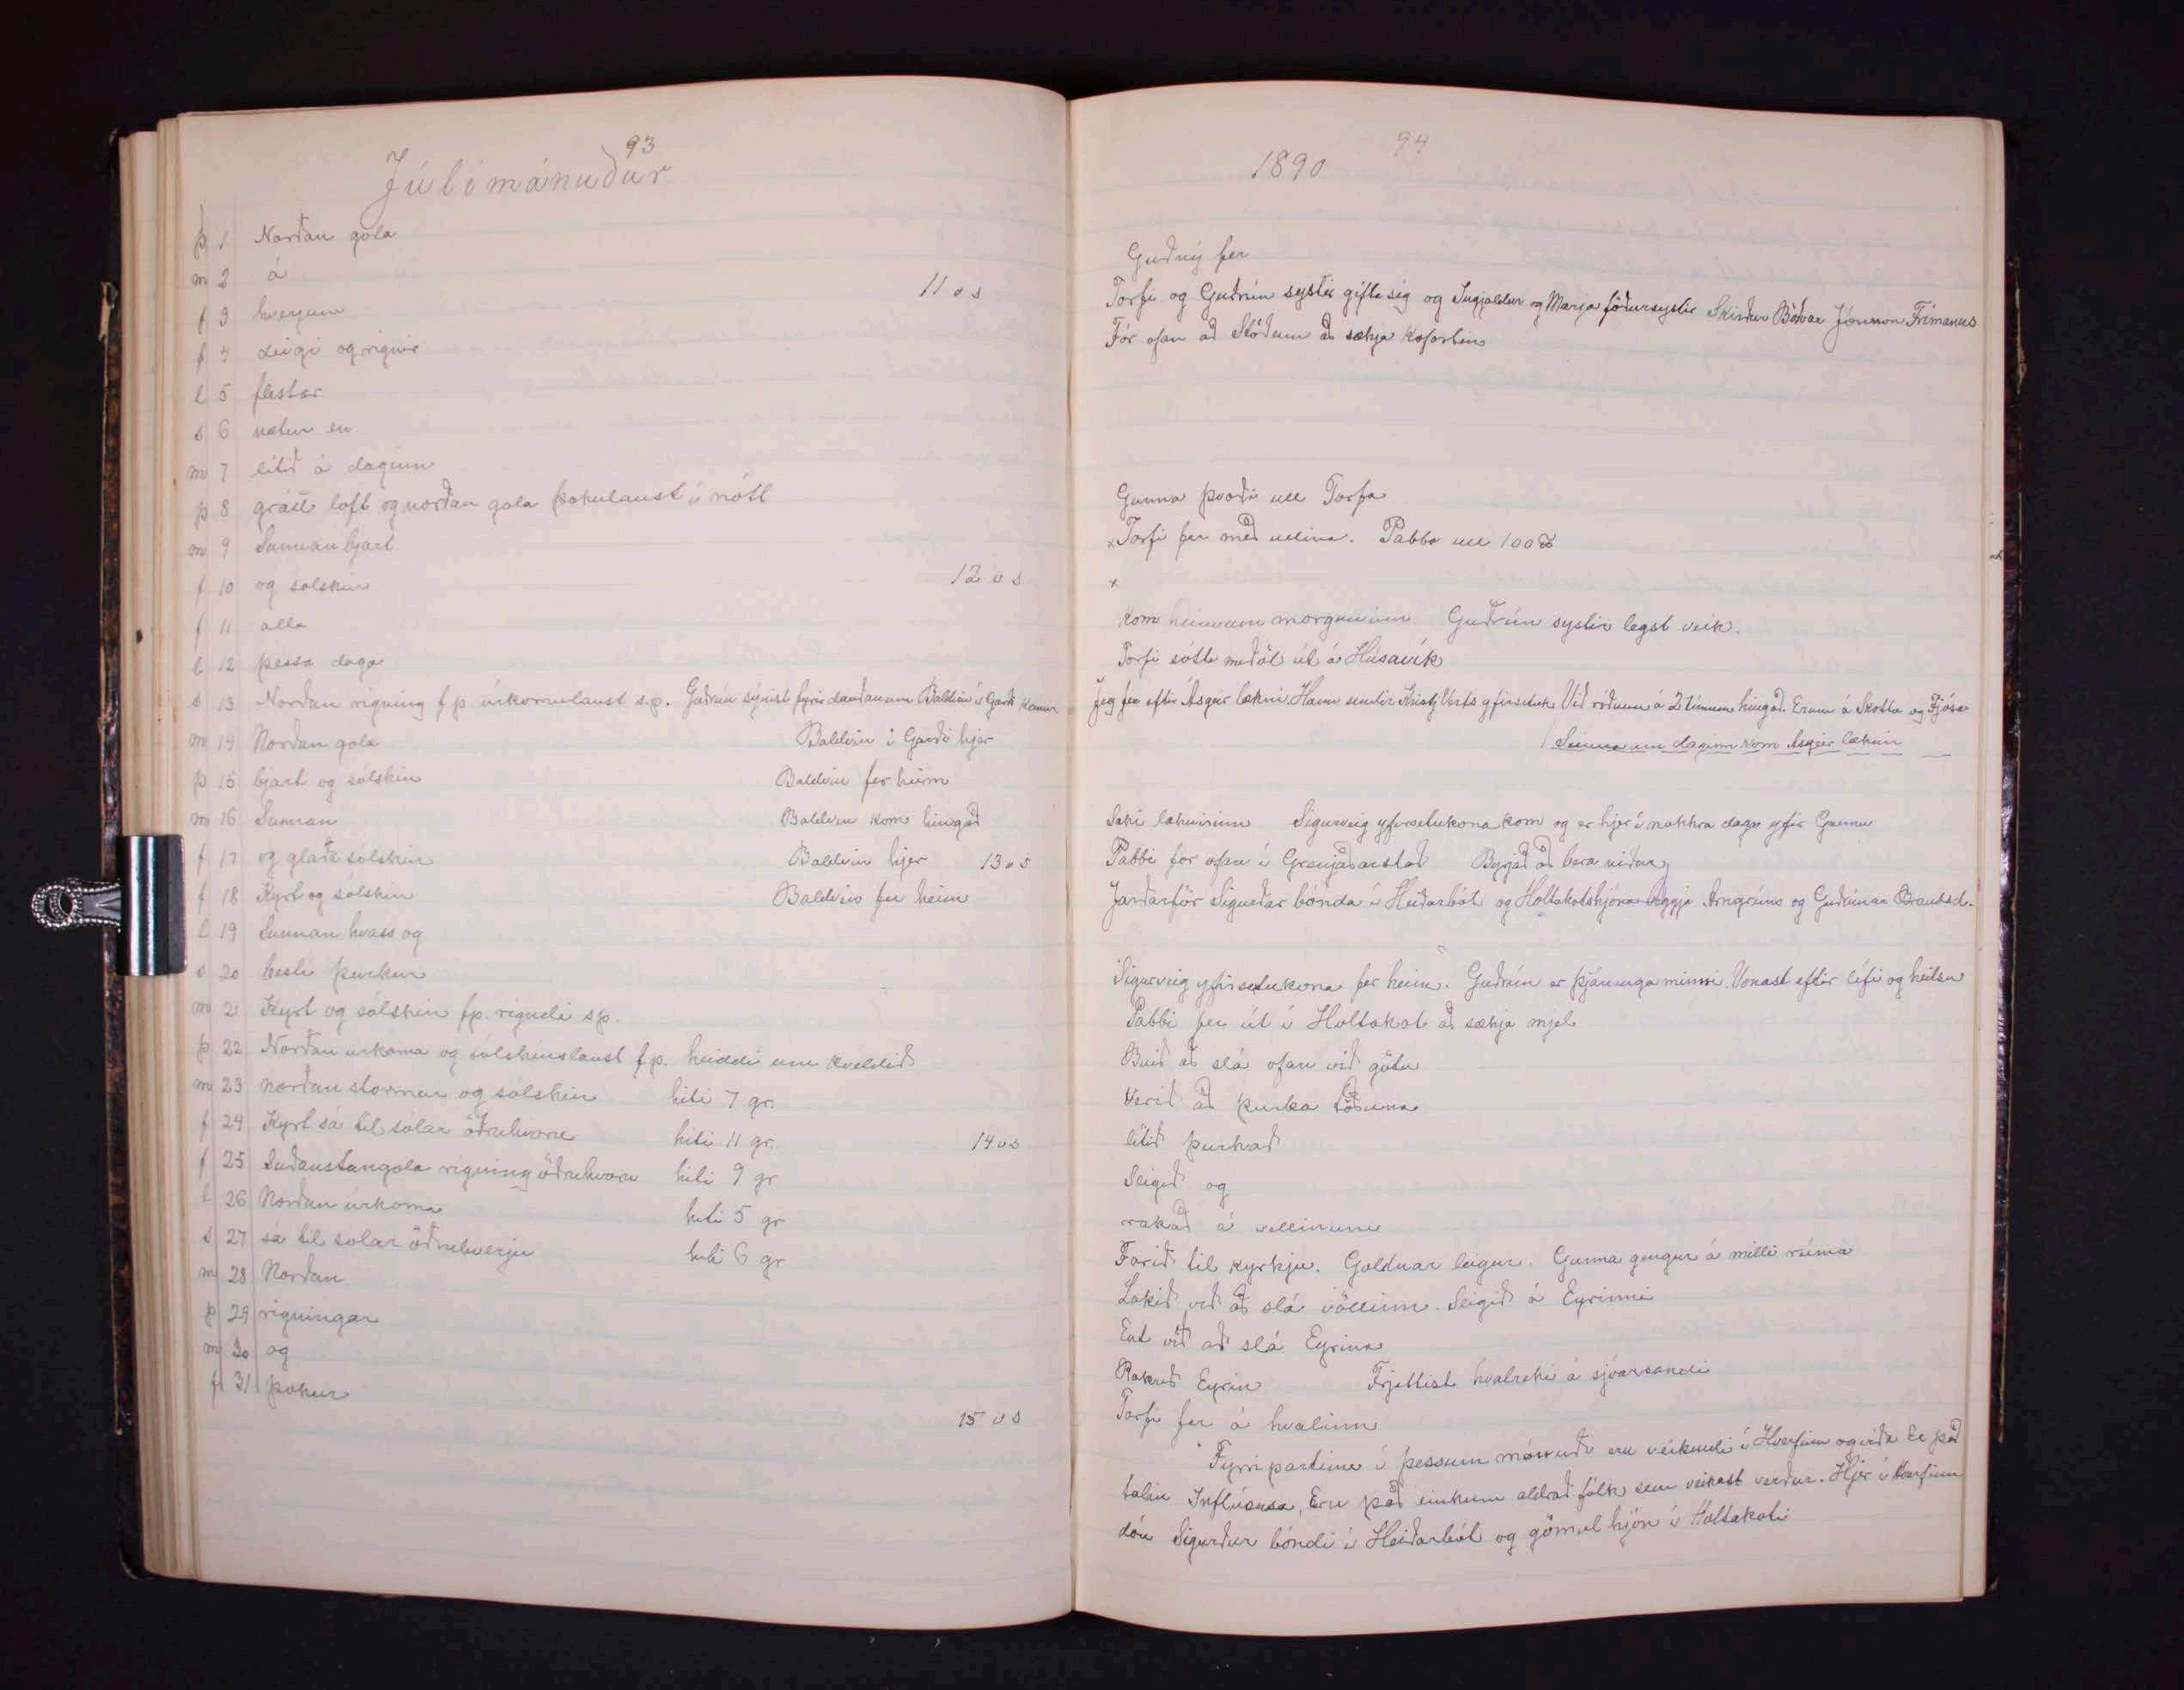 93
Júlímánuður
þ 1 Norðan gola
m 2 á
11 v s
f 3 hverjum
f 4 deigi og rignir
l 5 flestar
s 6 nætur en
m 7 lítið á daginn
þ 8 gráu loft og norðan gola þokulaust í nótt
m 9 Sunnan bjart
f 10 og sólskin
12 v s
f 11 alla
l 12 þessa daga
s 13 Norðan rigning f.p. úrkomulaust s.p. Guðrún sýnist fyrir dauðanum Baldvin í Garði kemur
m 14 Norðan gola Baldvin í Garði hjer
þ 15 bjart og sólskin Baldvin fer heim
m 16 Sunnan Baldvin kom hingað
f 17 og glaða sólskin Baldvin hjer 13 v s
f 18 Kyrt og sólskin Baldvin fer heim
l 19 Sunnan hvass og
s 20 besti þurkur
m 21 Kyrt og sólskin f.p. rigndi s.p.
þ 22 Norðan urkoma og sólskinslaust f.p. heiddi um kveldið
m 23 norðan stormur og sólskin hiti 7 gr.
f 24 Kyrt sá til sólar öðruhvoru hiti 11 gr. 14 v s
f 25 Suðaustangola rigning öðruhvoru hiti 9 gr
l 26 Norðan úrkoma hiti 5 gr
s 27 sá til sólar öðruhverju hiti 6 gr
m 28 Norðan
þ 29 rigningar
m 30 og
f 31 þokur
15 v s
94
1890
Guðný fer
Torfi og Guðrún systir gifta sig og Ingjaldur og Marja föðursystir Skírður Böðvar Jónsson Frímanns
Fór ofan að Slöðum að sækja kofortin
Gunna þvoði ull Torfa
x Torfi fer með ullina. Pabba ull 100 ℔
x
Kom heim um morguninn Guðrún systir legst veik.
Torfi sótti meðöl út á Húsavík
Jeg fer eftir Ásgeir lækni Hann sendir Kristj Verts yfirsetuk. Við riðum á 2 tímum hingað. Erum á Skotta og Fjósa
Seinna um daginn kom Ásgeir læknir
læknirinn Sigurveig yfirsetukona kom og er hjer í nokkra daga yfir Gunnu
Pabbi fór ofan í Grenjaðarstað Byrjað að bera niður
Jarðarför Sigurðar bónda í Heiðarbót og Holtakotshjóna beggja Arngríms og Guðrúnar Brandsd.
Sigurveig yfirsetukona fer heim. Guðrún er þjáninga minni. Vonast eftir lífi og heilsu
Pabbi fer út í Holtakot að sækja mjöl
Buið að slá ofan við götu
Verið að þurka töðuna
lítið þurkað
Slegið og
rakað á vellinum
Farið til kyrkju. Goldnar leigur. Gunna gengur á milli rúma
Lokið við að slá völlinn. Slegið á Eyrinni
Ent við að slá Eyrina
Rakuð Eyrin Frjettist hvalreki á sjóarsandi
Torfi fer á hvalinn
Fyrri partinn í þessum mánuði eru veikindi í Hverfinu og víða Er það
talin Inflúensa, Eru það einkum aldrað fólk sem veikast verður. Hjer í Hverfinu
dóu Sigurður bóndi í Heiðarbót og gömul hjón í Holtakoti